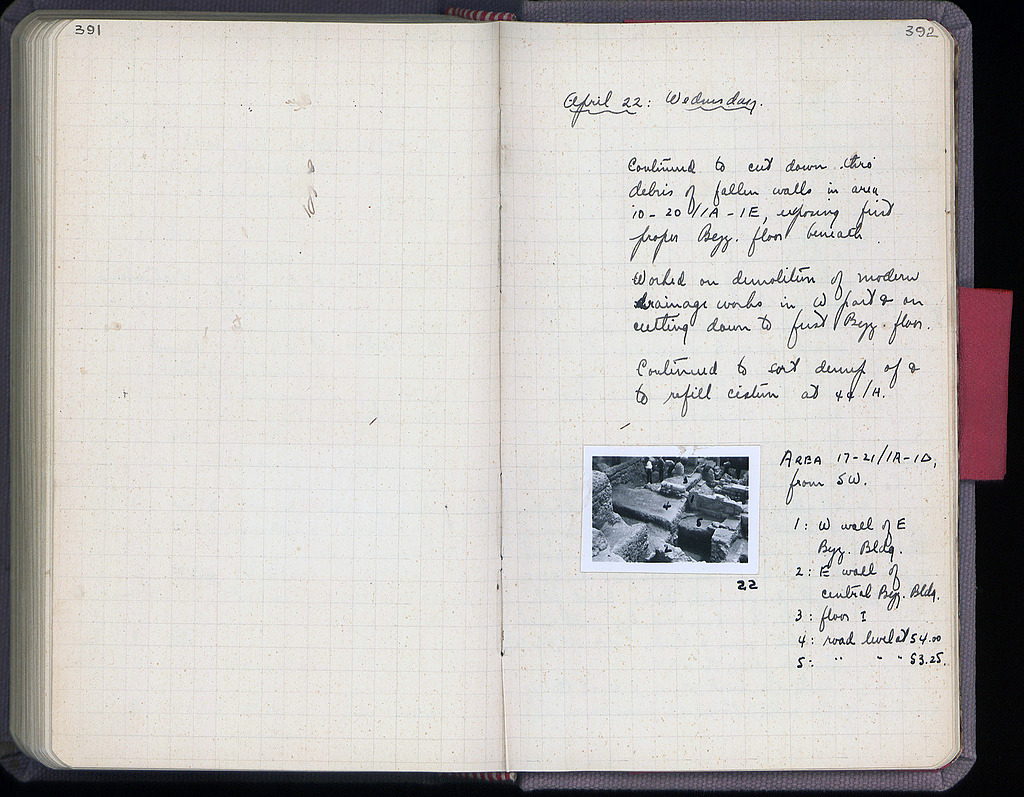 391
392
April 22: Wednesday.
Continued to cut down thro'
debris of fallen walls in area
10-20/1A-1E, exposing first
proper Byz. floor beneath.
Worked on demolition of modern
drainage works in W part & on
cutting down to first Byz. floor.
Continued to sort dump of &
to refill cistern at 44/H.
AREA 17-21/1A-1D,
from SW.
1: W wall of E
Byz. Bldg.
2: E wall of
central Byz. Bldg.
3: floor I
4: road level at 54.00
5: " " " 53.25.
22
4
5